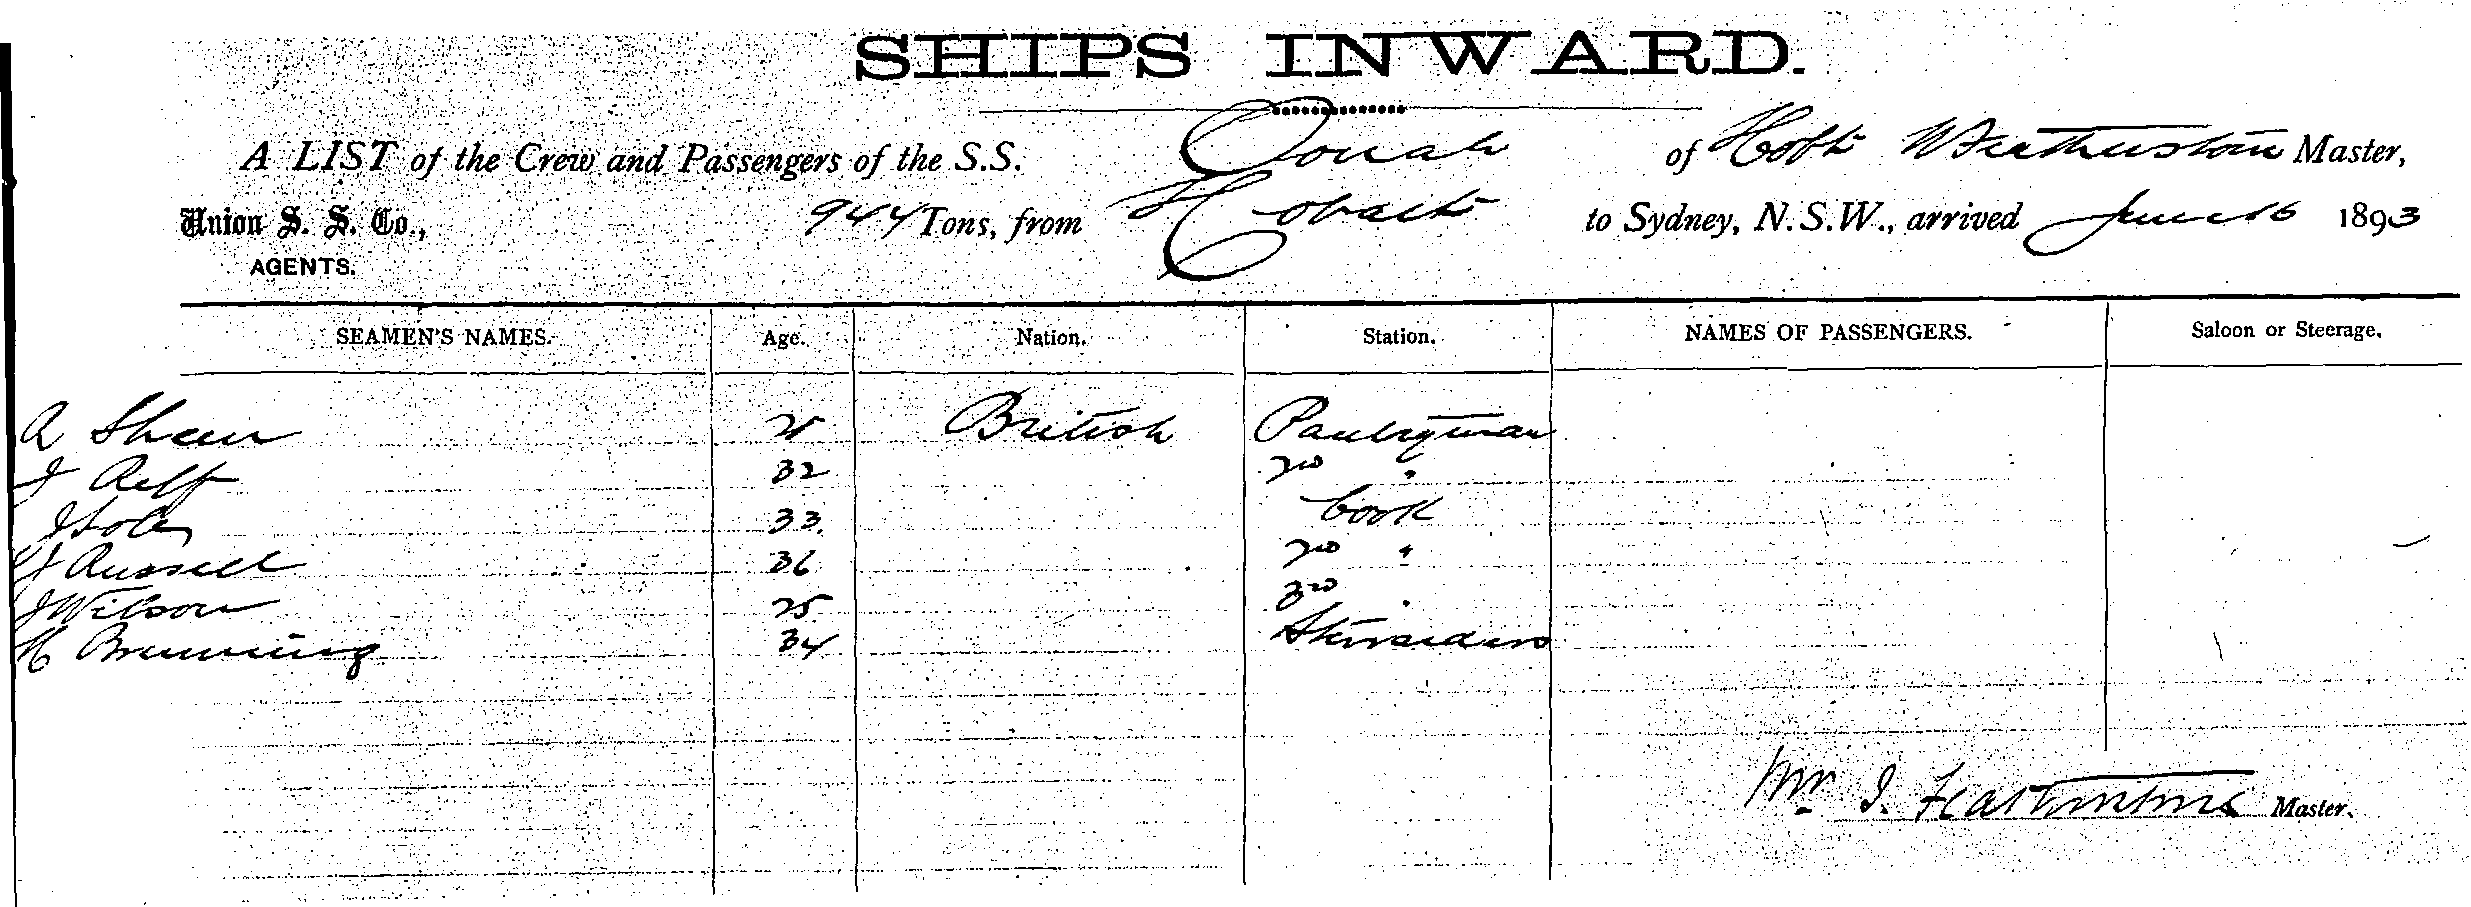 SHIPS INWARD.
A LIST of the Crew and Passengers of the S.S. Oonah of Hobt Featherstone Master,
Union S. S. Co., 944 Tons, from Hobart to Sydney, N.S.W., arrived June 16 1893
AGENTS.
SEAMEN'S NAMES. Age. Nation. Station. NAMES OF PASSENGERS. Saloon or Steerage.
A Shaw British Pantryman
J Relf 32 2nd "
J 33. Cook
Russell 36 2nd "
J Wilson 25 3rd "
H Brunning 34 Stewardess
Master.